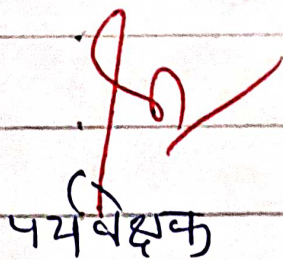 पर्यवेक्षक